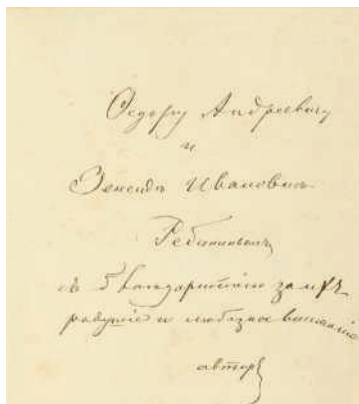 Ѳедору Андреевичу
и
Зенеидѣ Ивановнѣ
Ребининымъ
съ благодарностію за ихъ
радушіе и любезное вниманіе
авторъ